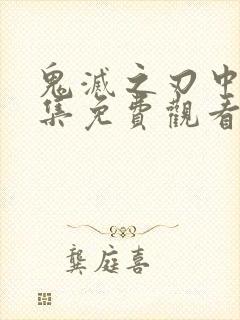 鬼滅之刃中
集免費觀看
龔庭喜